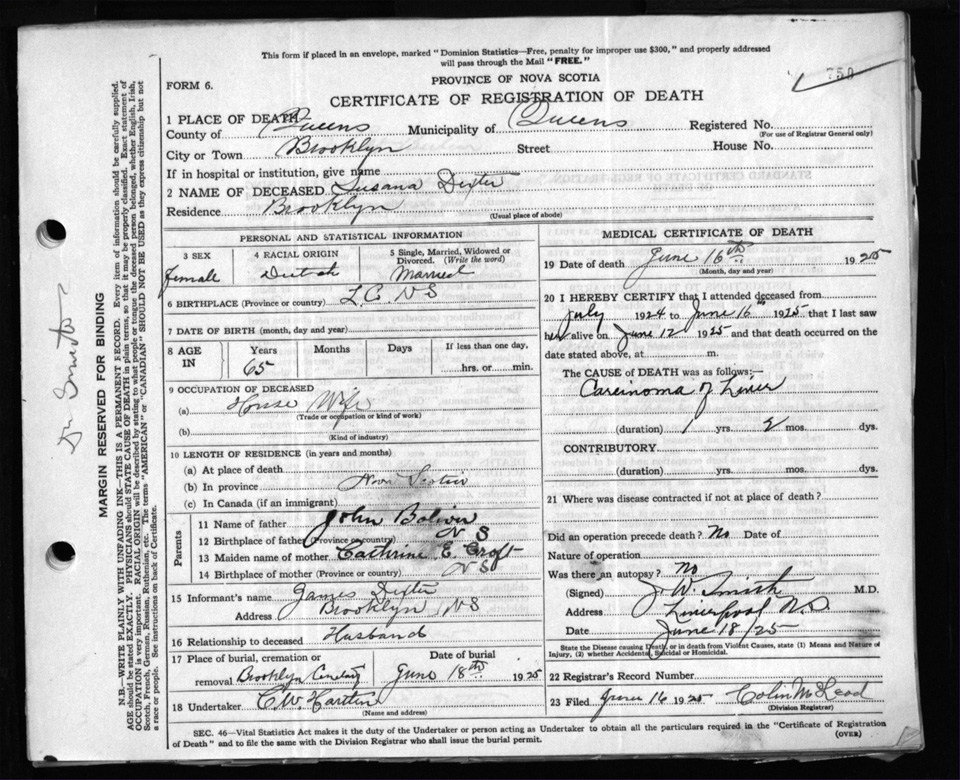 This form if placed in an envelope, marked "Dominion Statistics—Free, penalty for improper use $300," and properly addressed
will pass through the Mail "FREE."
750
FORM 6.
PROVINCE OF NOVA SCOTIA
CERTIFICATE OF REGISTRATION OF DEATH
1 PLACE OF DEATH
County of Queens Municipality of Queens Registered No.
(For use of Registrar General only)
City or Town Brooklyn Street House No.
If in hospital or institution, give name
2 NAME OF DECEASED Susana Dexter
Residence Brooklyn
(Usual place of abode)
PERSONAL AND STATISTICAL INFORMATION
3 SEX 4 RACIAL ORIGIN 5 Single, Married, Widowed or
Divorced. (Write the word)
female Dutch Married
6 BIRTHPLACE (Province or country) L.C. NS
7 DATE OF BIRTH (month, day and year)
8 AGE IN Years Months Days If less than one day,
65 hrs. or min.
9 OCCUPATION OF DECEASED
(a) House Wife
(Trade or occupation or kind of work)
(b)
(Kind of industry)
10 LENGTH OF RESIDENCE (in years and months)
(a) At place of death
(b) In province Nova Scotia
(c) In Canada (if an immigrant)
Parents
11 Name of father John Boliver
12 Birthplace of father (Province or country) N S
13 Maiden name of mother Cathrine E Croft
14 Birthplace of mother (Province or country) NS
15 Informant's name James Dexter
Address Brooklyn NS
16 Relationship to deceased Husband
17 Place of burial, cremation or Date of burial
removal Brooklyn Cemetary June 18th 1925
18 Undertaker C.W.
(Name and address)
MEDICAL CERTIFICATE OF DEATH
19 Date of death June 16th 1925
(Month, day and year)
20 I HEREBY CERTIFY that I attended deceased from
July 1924 to June 16th 1925 that I last saw
her alive on June 12 1925 and that death occurred on the
date stated above, at m.
The CAUSE of DEATH was as follows:—
Carcinoma of Liver
(duration) 1 yrs. 2 mos. dys.
CONTRIBUTORY.
(duration) yrs. mos. dys.
21 Where was disease contracted if not at place of death?
Did an operation precede death? No Date of
Nature of operation
Was there an autopsy? No
(Signed) J.W. Smith M.D.
Address Liverpool N.S.
Date June 18/25
State the Disease causing Death, or in death from Violent Causes, state (1) Means and Nature of
Injury, (2) whether Accidental, Suicidal or Homicidal.
22 Registrar's Record Number
23 Filed June 16 1925 Colin McLeod
(Division Registrar)
SEC. 46—Vital Statistics Act makes it the duty of the Undertaker or person acting as Undertaker to obtain all the particulars required in the "Certificate of Registration
of Death" and to file the same with the Division Registrar who shall issue the burial permit.
(OVER)
MARGIN RESERVED FOR BINDING
N.B.—WRITE PLAINLY WITH UNFADING INK—THIS IS A PERMANENT RECORD. Every item of information should be carefully supplied.
AGE should be stated EXACTLY. PHYSICIANS should STATE CAUSE OF DEATH in plain terms, so that it may be properly classified. Exact statement of
OCCUPATION is very important. RACIAL ORIGIN will be described by stating to what people or tongue the deceased person belonged, whether English, Irish,
Scotch, French, German, Russian, Ruthenian, etc. The terms "AMERICAN" or "CANADIAN" SHOULD NOT BE USED as they express citizenship but not
a race or people. See instructions on back of Certificate.